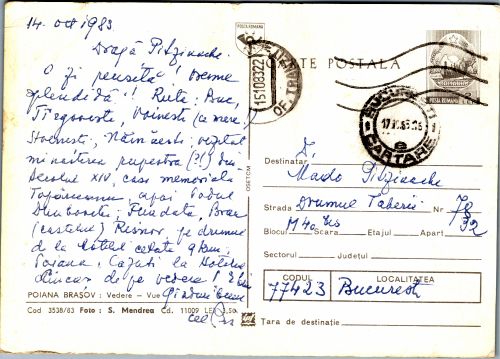 14. oct 1983.
Dragă Pitzinache
O zi pensulă! Vreme
splendidă! Ruta: Buc,
Tîrgoviște, Voinești (ce mere!)
Stoenești, Nămăești: vizitat
mînăstirea rupestră (?!) din
secolul XIV, casa memorială
Topîrceanu, apoi Podul
Dîmboviței, Fundata, Bran
(castelul) Rîșnov, pe drumul
de la hotel cetate 9 km.
Poiana, Cazați la Hotelul
POIANA BRAȘOV: Vedere - Vue
Cod 3538/83 Foto: S. Mendrea Cd. 11009 LEI 3,50
POȘTA ROMÂNĂ
15108322
OF. TRANZIT
CARTE POȘTALĂ
POSTA ROMANA
BUCUREȘTI
CARTARE
OSETCM
Destinatar D.
Mado Pitzinache
Strada Drumul Taberii Nr. 78
Blocul M40 bis Scara Etajul Apart. 32
Sectorul Județul
CODUL LOCALITATEA
77423 București
Țara de destinație